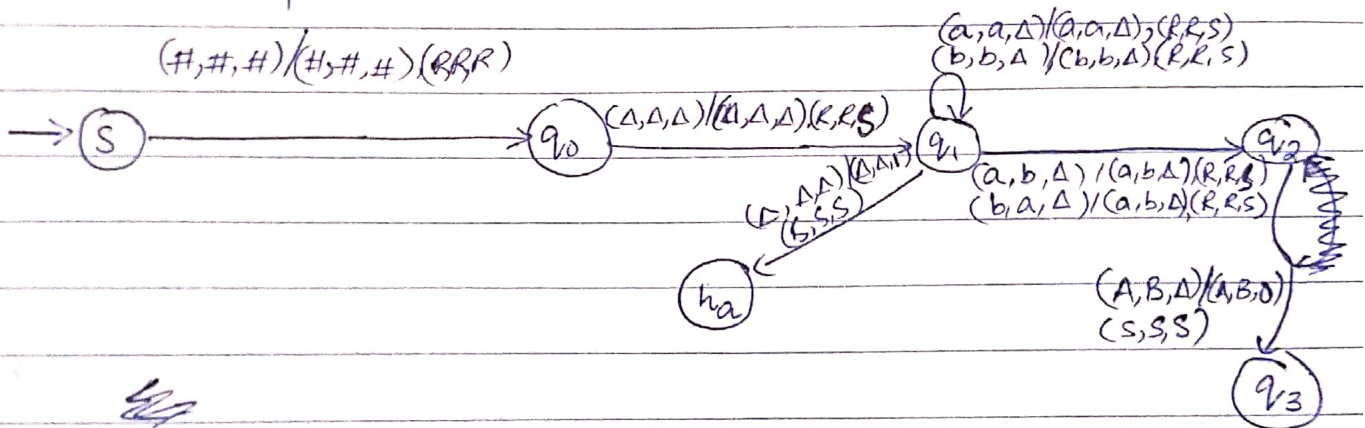 (#,#,#)/(#,#,#)(R,R,R)
(a,a,Δ)/(a,a,Δ),(R,R,S)
(b,b,Δ)/(b,b,Δ)(R,R,S)
S
q0
(Δ,Δ,Δ)/(Δ,Δ,Δ)(R,R,S)
q1
q2
(Δ,Δ,Δ)/(Δ,Δ,1)
(S,S,S)
(a,b,Δ)/(a,b,Δ)(R,R,S)
(b,a,Δ)/(a,b,Δ),(R,R,S)
ha
(A,B,Δ)/(A,B,0)
(S,S,S)
q3